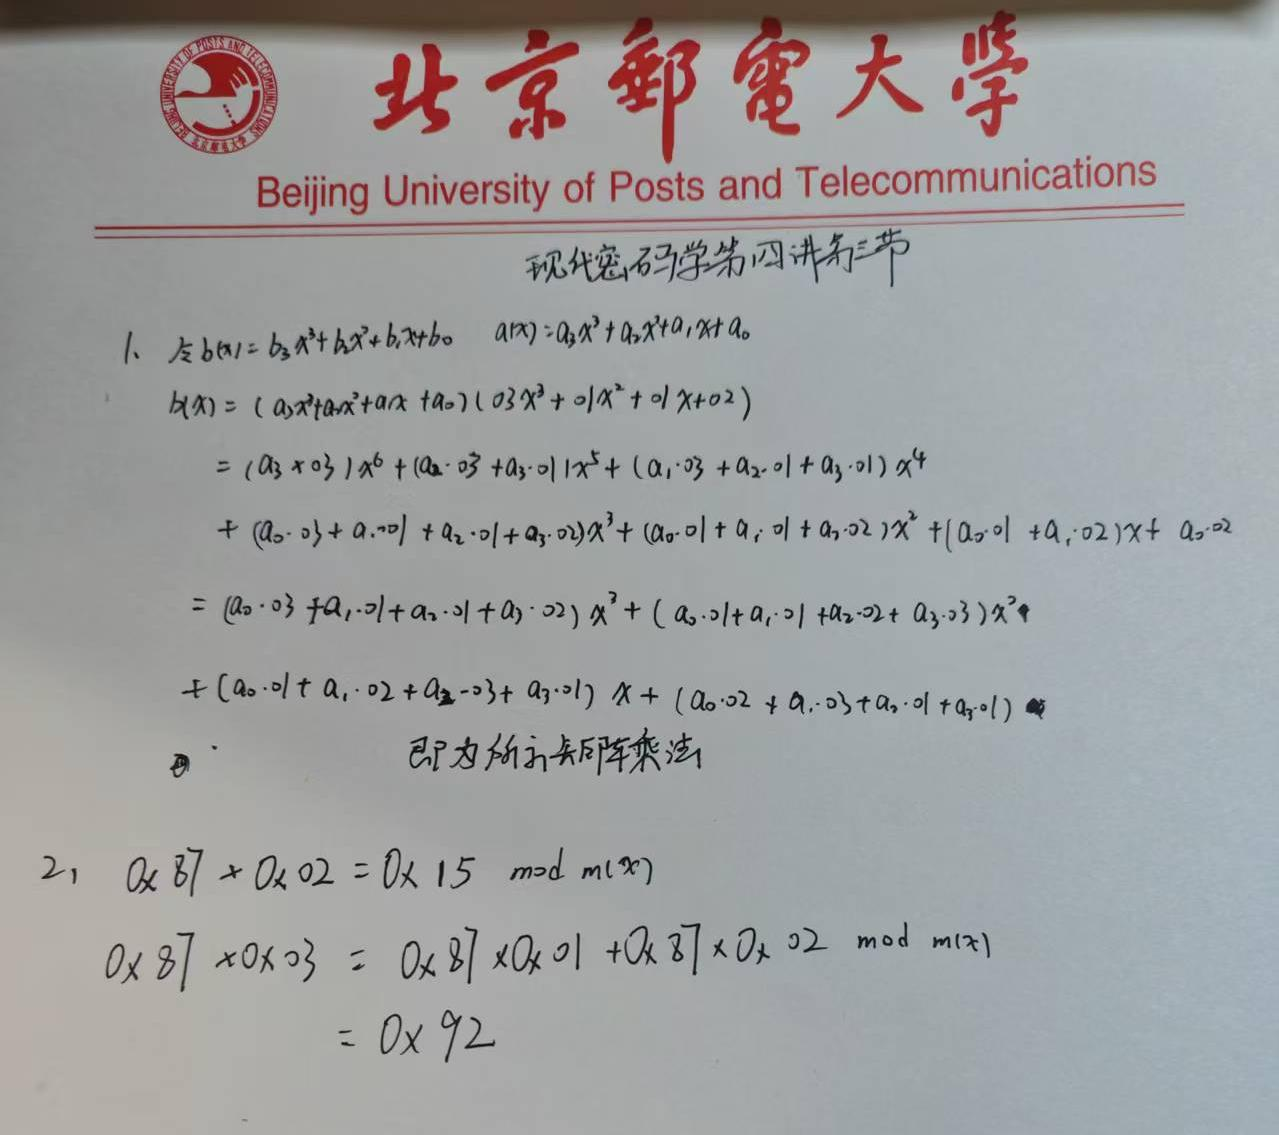 北京郵電大學
Beijing University of Posts and Telecommunications
现代密码学第四讲第三节
1、令b(x)=b₃x³+b₂x²+b₁x+b₀ a(x)=a₃x³+a₂x²+a₁x+a₀
b(x)=(a₃x³+a₂x²+a₁x+a₀)(03x³+01x²+01x+02)
=(a₃×03)x⁶+(a₂·03+a₃·01)x⁵+(a₁·03+a₂·01+a₃·01)x⁴
+(a₀·03+a₁·01+a₂·01+a₃·02)x³+(a₀·01+a₁·01+a₂·02)x²+(a₀·01+a₁·02)x+a₀·02
=(a₀·03+a₁·01+a₂·01+a₃·02)x³+(a₀·01+a₁·01+a₂·02+a₃·03)x²
+(a₀·01+a₁·02+a₂·03+a₃·01)x+(a₀·02+a₁·03+a₂·01+a₃·01)
即为所示矩阵乘法
2、0x87×0x02=0x15 mod m(x)
0x87×0x03=0x87×0x01+0x87×0x02 mod m(x)
=0x92